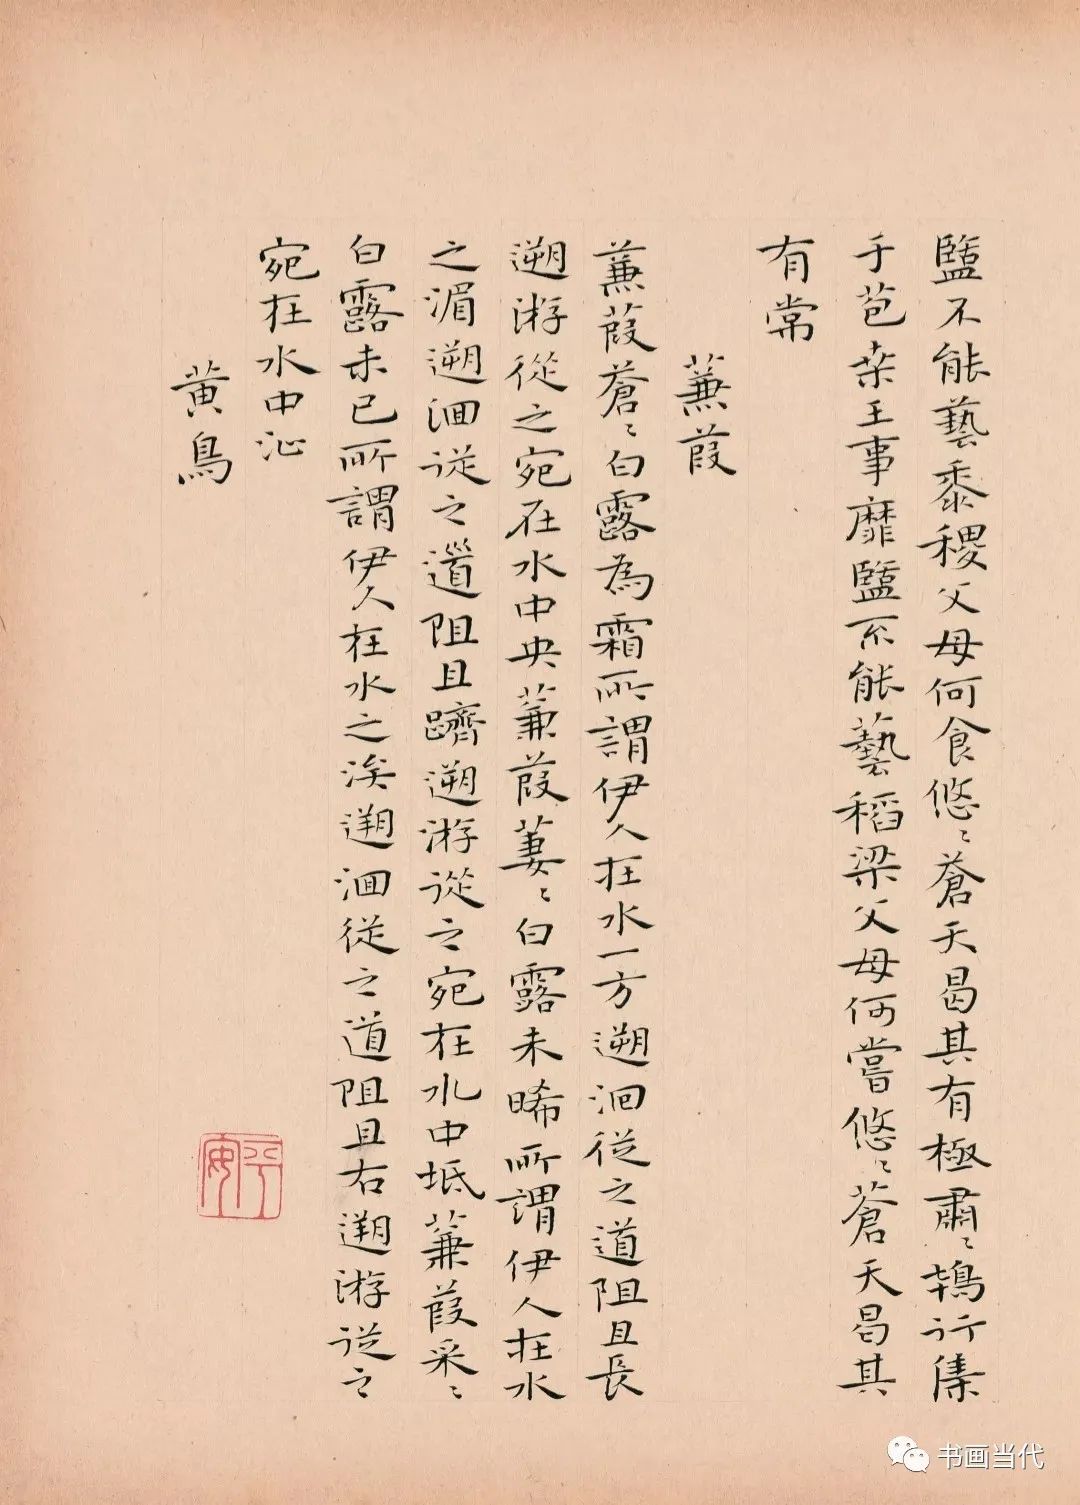 盬不能藝黍稷父母何食悠〻蒼天曷其有極肅〻鴇行集
于苞桒王事靡盬不能藝稻梁父母何嘗悠〻蒼天曷其
有常
蒹葭
蒹葭蒼〻白露為霜所謂伊人在水一方遡洄從之道阻且長
遡游從之宛在水中央蒹葭萋〻白露未晞所謂伊人在水
之湄遡洄從之道阻且躋遡游從之宛在水中坻蒹葭采〻
白露未已所謂伊人在水之涘遡洄從之道阻且右遡游從之
宛在水中沚
黄鳥
平安
书画当代